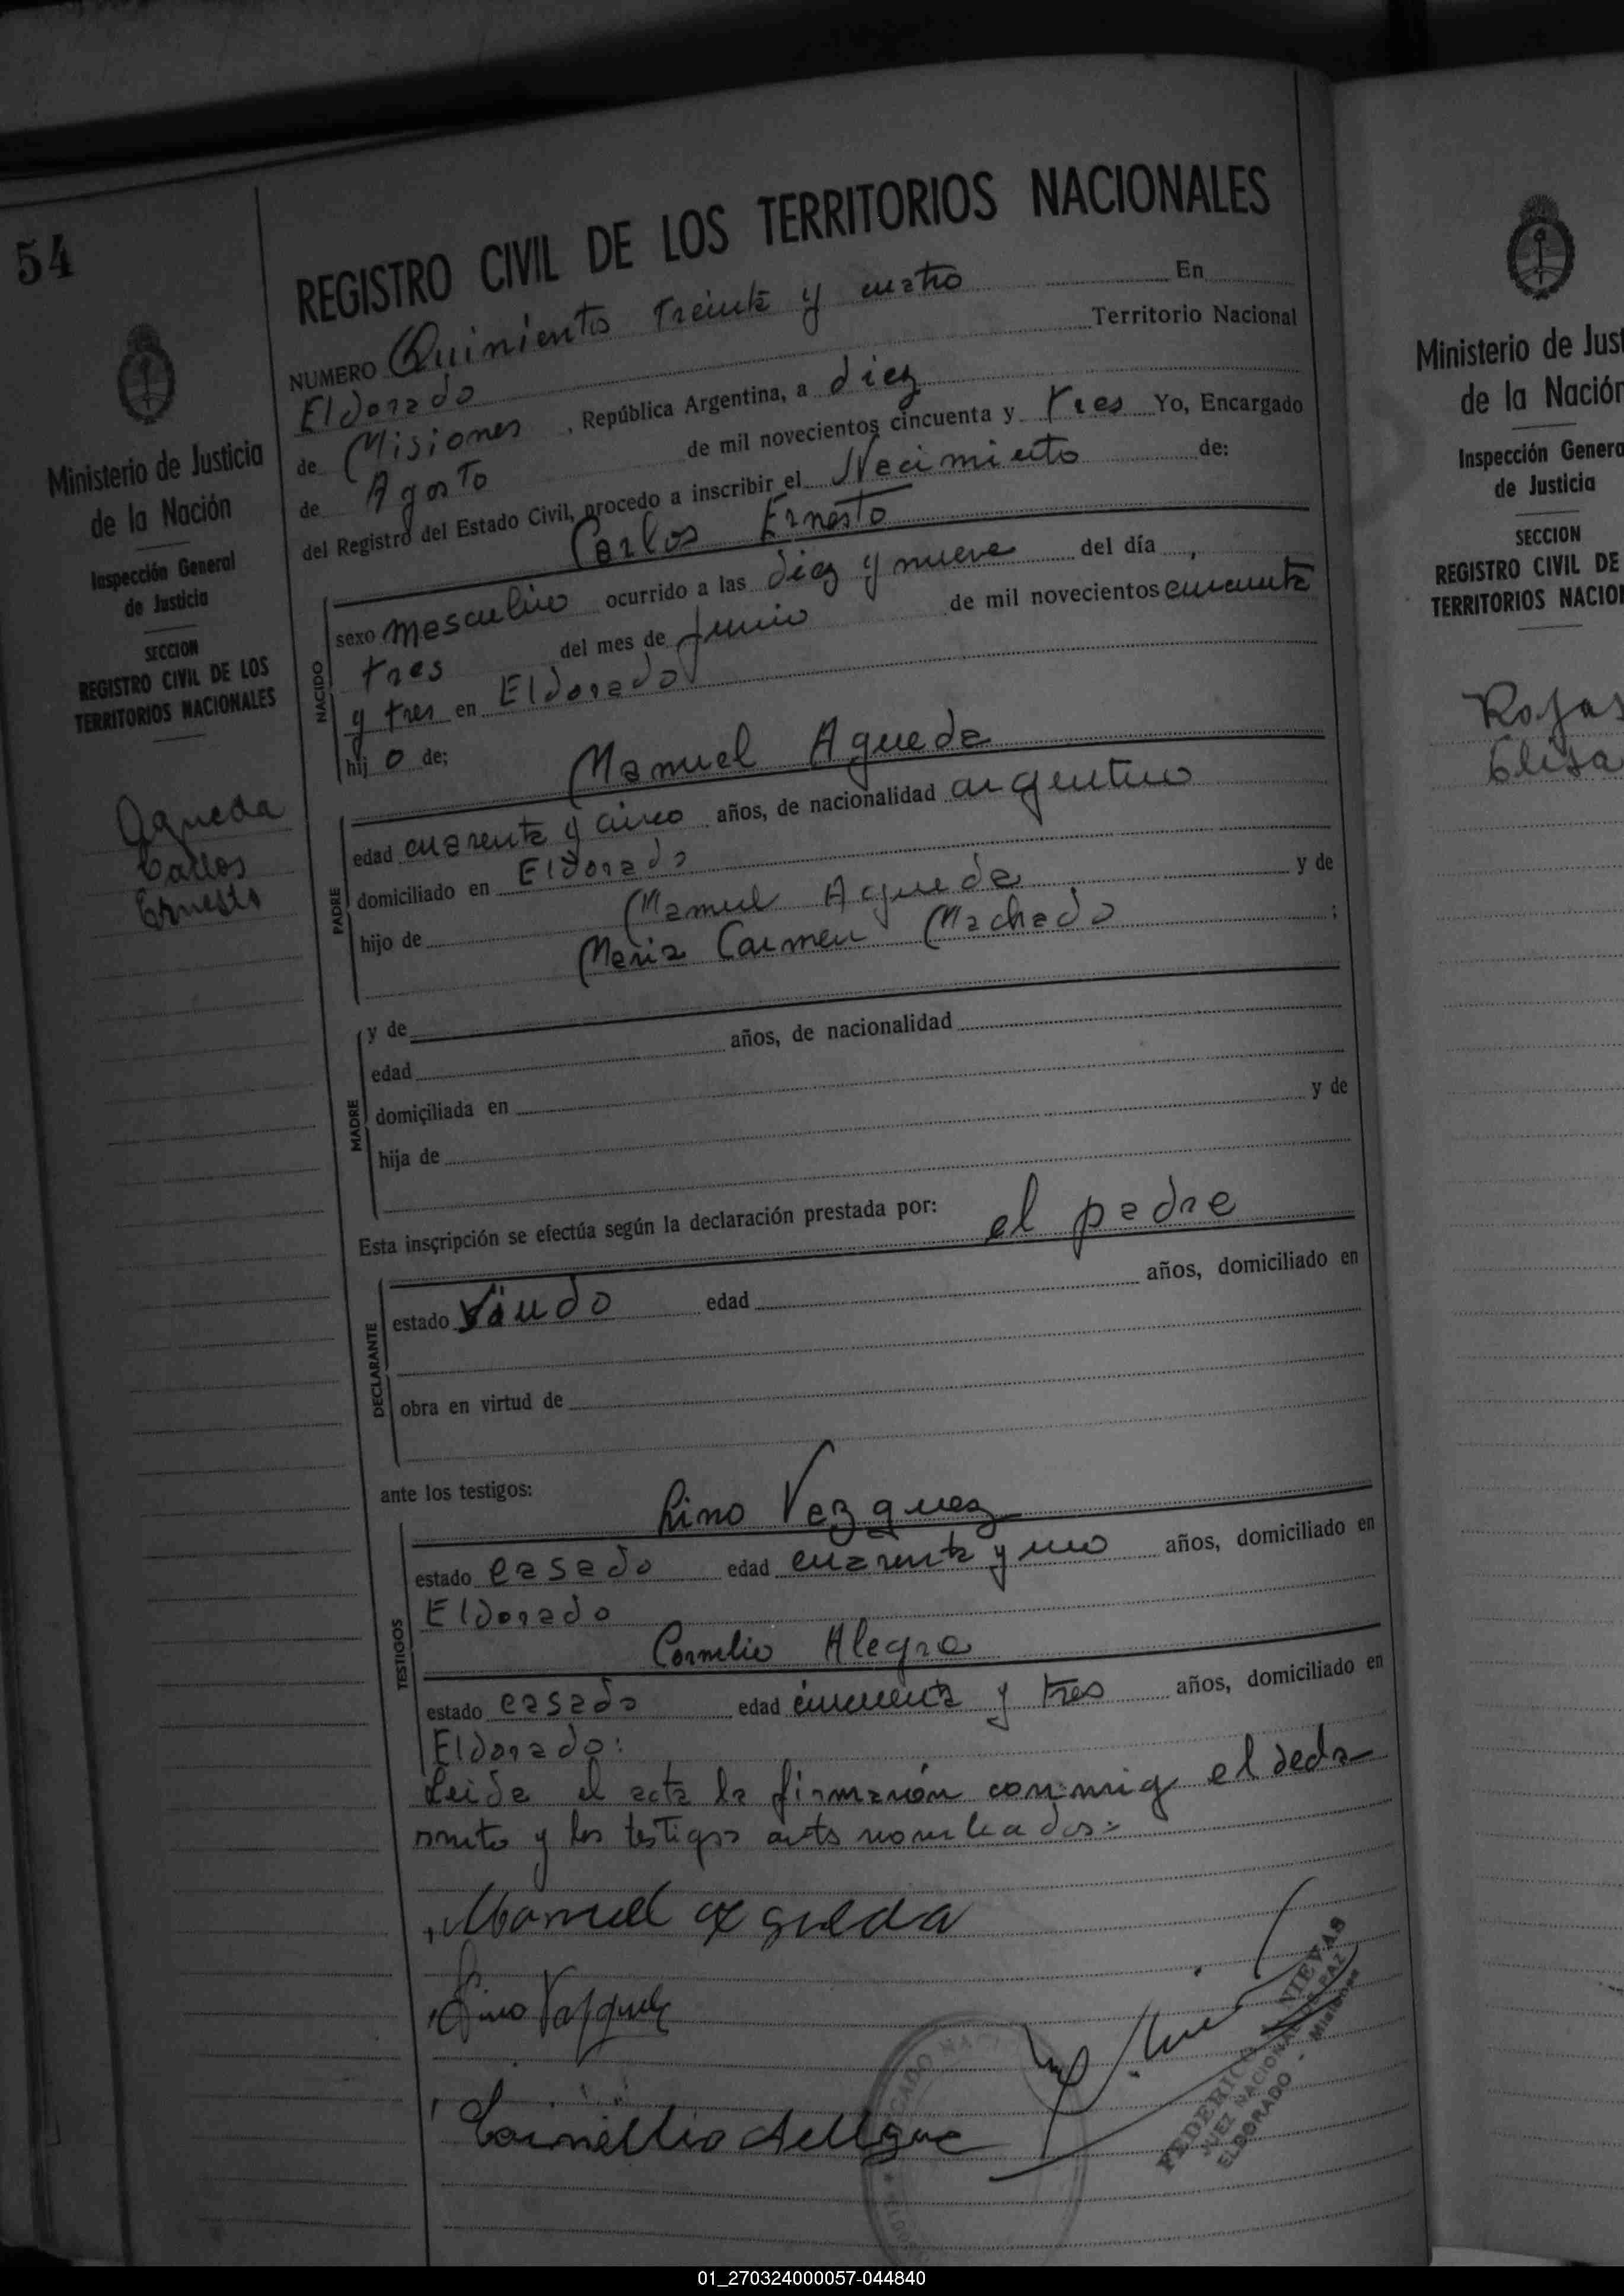 54
REGISTRO CIVIL DE LOS TERRITORIOS NACIONALES
NUMERO Quinientos Treinta y cuatro En
Eldorado Territorio Nacional
de Misiones, República Argentina, a diez
de Agosto de mil novecientos cincuenta y tres Yo, Encargado
del Registro del Estado Civil, procedo a inscribir el Nacimiento de:
Carlos Ernesto
NACIDO
sexo masculino ocurrido a las diez y nueve del día
tres del mes de Junio de mil novecientos cincuenta
y tres en Eldorado
hijo de:
Manuel Agueda
PADRE
edad cuarenta y cinco años, de nacionalidad argentino
domiciliado en Eldorado
hijo de Manuel Agueda y de
Maria Carmen Machado ;
MADRE
y de
edad años, de nacionalidad
domiciliada en
hija de y de
Esta inscripción se efectúa según la declaración prestada por:
el padre
DECLARANTE
estado Viudo edad años, domiciliado en
obra en virtud de
ante los testigos:
Lino Vezquez
TESTIGOS
estado casado edad cuarenta y uno años, domiciliado en
Eldorado
Cornelio Alegre
estado casado edad cincuenta y tres años, domiciliado en
Eldorado:
Leida el acta la firmarón conmig el decla-
y los testigos nombrados:
Manuel agueda
Lino Vasquez
FEDERICO NIEVAS
JUEZ NACIONAL DE PAZ
ELDORADO - Misiones
Ministerio de Justicia
de la Nación
Inspección General
de Justicia
SECCION
REGISTRO CIVIL DE LOS
TERRITORIOS NACIONALES
Agueda
Carlos
Ernesto
Ministerio de Just
de la Nación
Inspección Genera
de Justicia
SECCION
REGISTRO CIVIL DE
TERRITORIOS NACIO
Rojas
Elisa
01_270324000057-044840